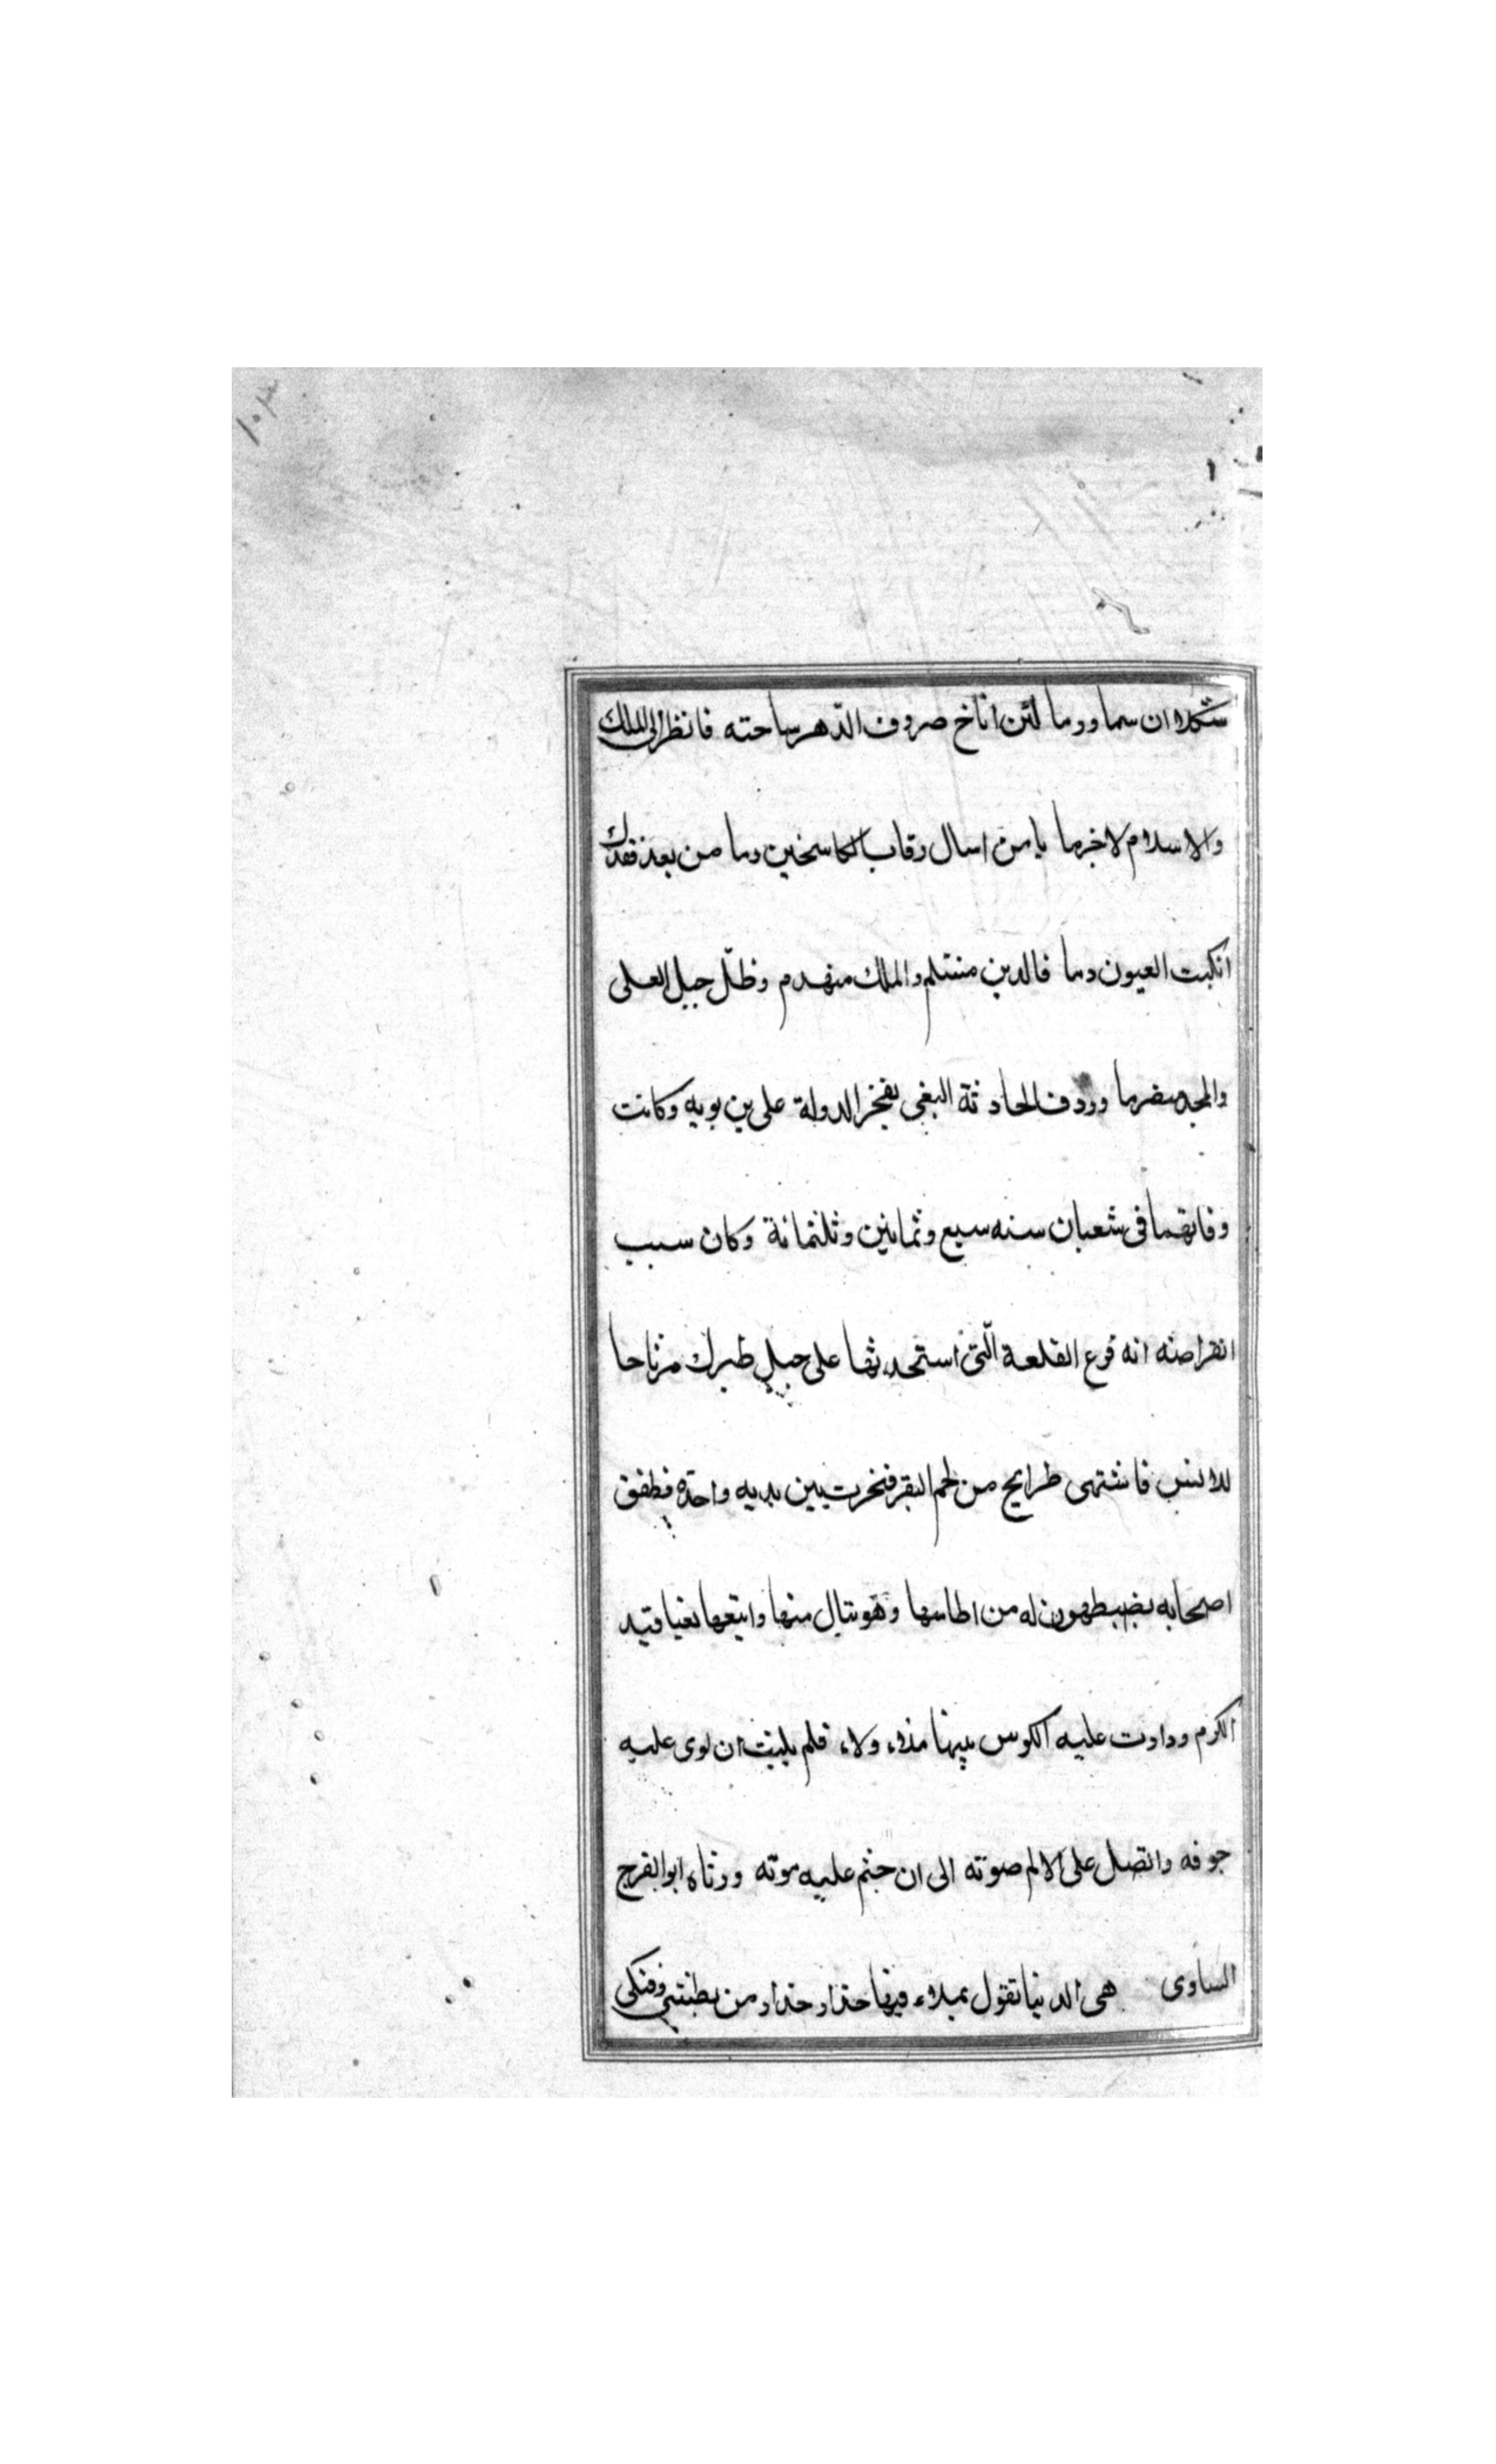 ستكلا ان سما وورما لئن اناخ صروف الدّهر ساحته فانظر الى الملك
والاسلام لاخرما يا من اسال رقاب الكاسخين دما من بعد فقدك
انكبت العيون دما فالدين منثلم والملك منهدم وظلّ حبل العلى
والمجد منصرما وردف الحادثة البغى بفخر الدولة على بن بويه وكانت
وفاتهما فى شعبان سنه سبع وثمانين وثلثمائة وكان سبب
انقراضه انه فرع القلعة الّتى استحدثها على جبل طبرك مرتاحا
للانس فاشتهى طرايح من لحم البقر فنحرت بين يديه واحدة فطفق
اصحابه يضبطهون له من اطاسها وهو ينال منها واتبعها بغيا قتيد
الكرم ودارت عليه الكوس بينها مذاء ولاء فلم يلبث ان لوى عليه
جوفه واتصل على الالم صوته الى ان ختم عليه موته ورثاه ابو الفرج
الساوى هى الدنيا تقول بملاء فيها حذار حذار من بطشى وفتكى